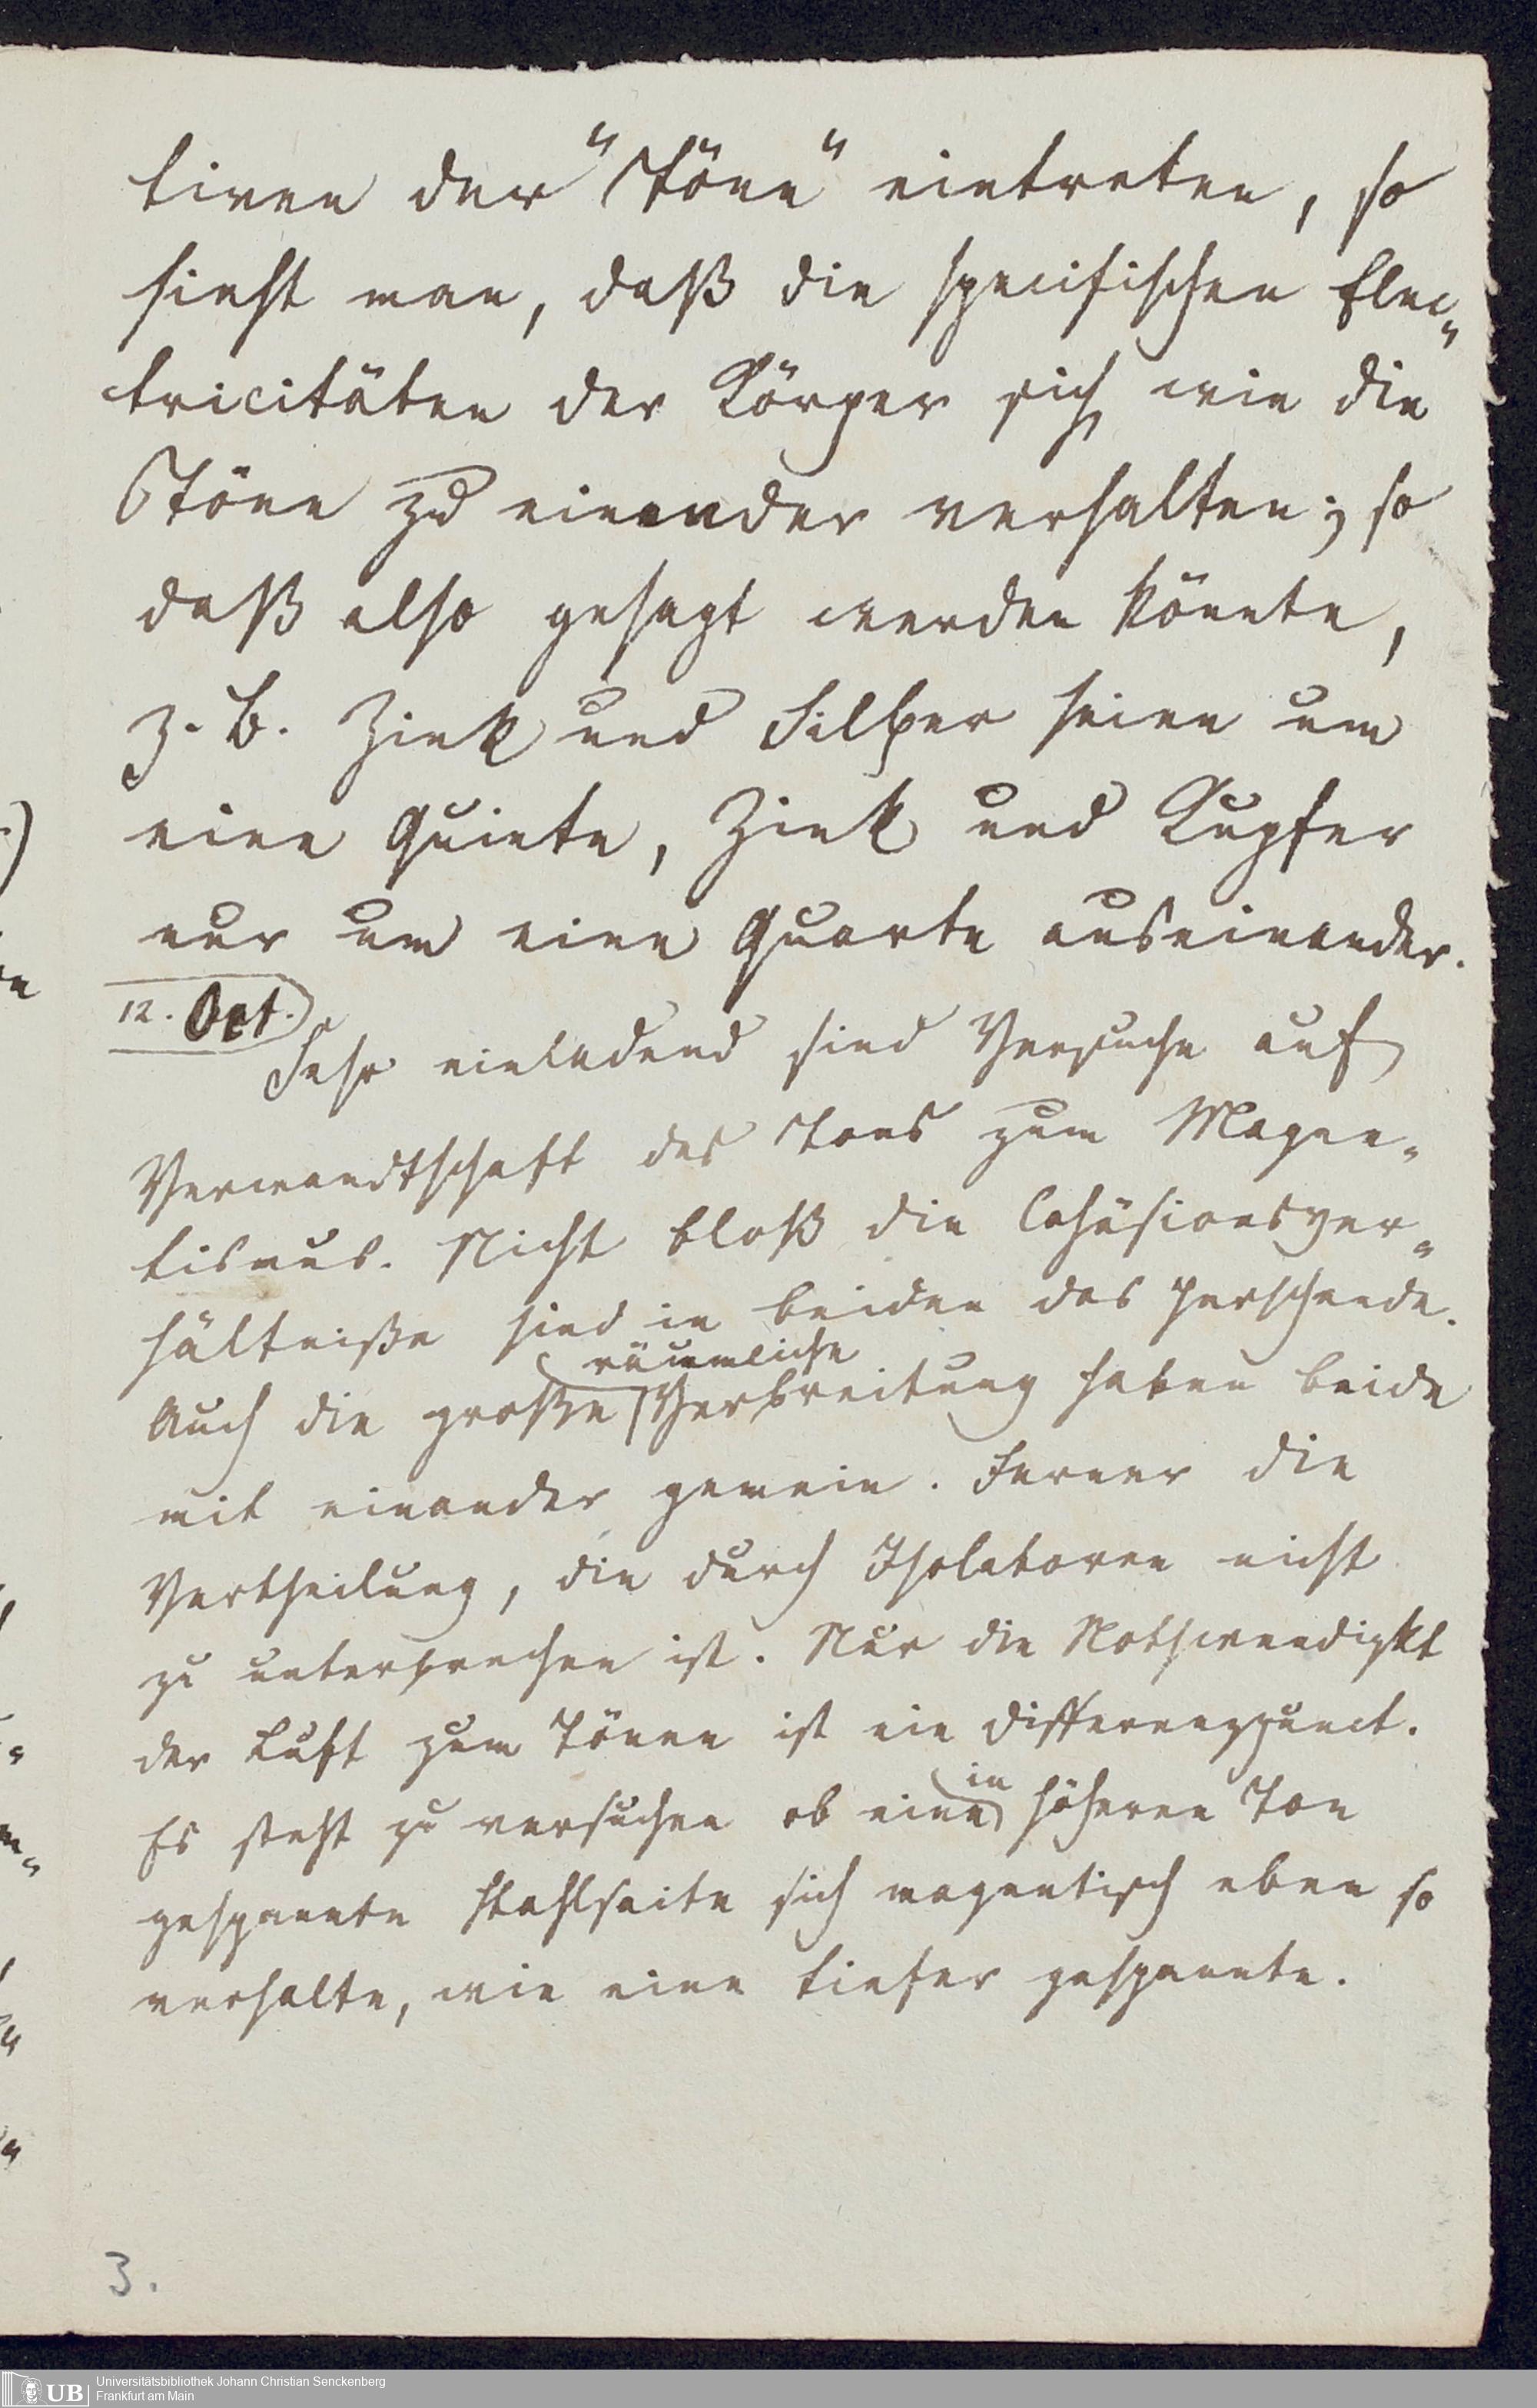 tiven der "Töne" eintreten, so
sieht man, daß die specifischen Elec„
tricitäten der Körper sich wie die
Töne zu einander verhalten; so
daß also gesagt werden könnte,
z. B. Zink und Silber seien um
eine Quinte, Zink und Kupfer
nur um eine Quarte auseinander.
12. Oct.
Sehr einladend sind Versuche auf
Verwandtschaft des Tons zum Magne„
tismus. Nicht bloß die Cohäsionsver„
hältniße sind in beiden das herschende.
räumliche
Auch die große Verbreitung haben beide
mit einander gemein. Ferner die
Vertheilung, die durch Isolatoren nicht
zu unterbrechen ist. Nur die Nothwendigkt
der Luft zum Tönen ist ein Differenzpunct.
in
Es steht zu versuchen ob eine höheren Ton
gespannte Stahlsaite sich magnetisch eben so
verhalte, wie eine tiefer gespannte.
3.
UB Universitätsbibliothek Johann Christian Senckenberg
Frankfurt am Main